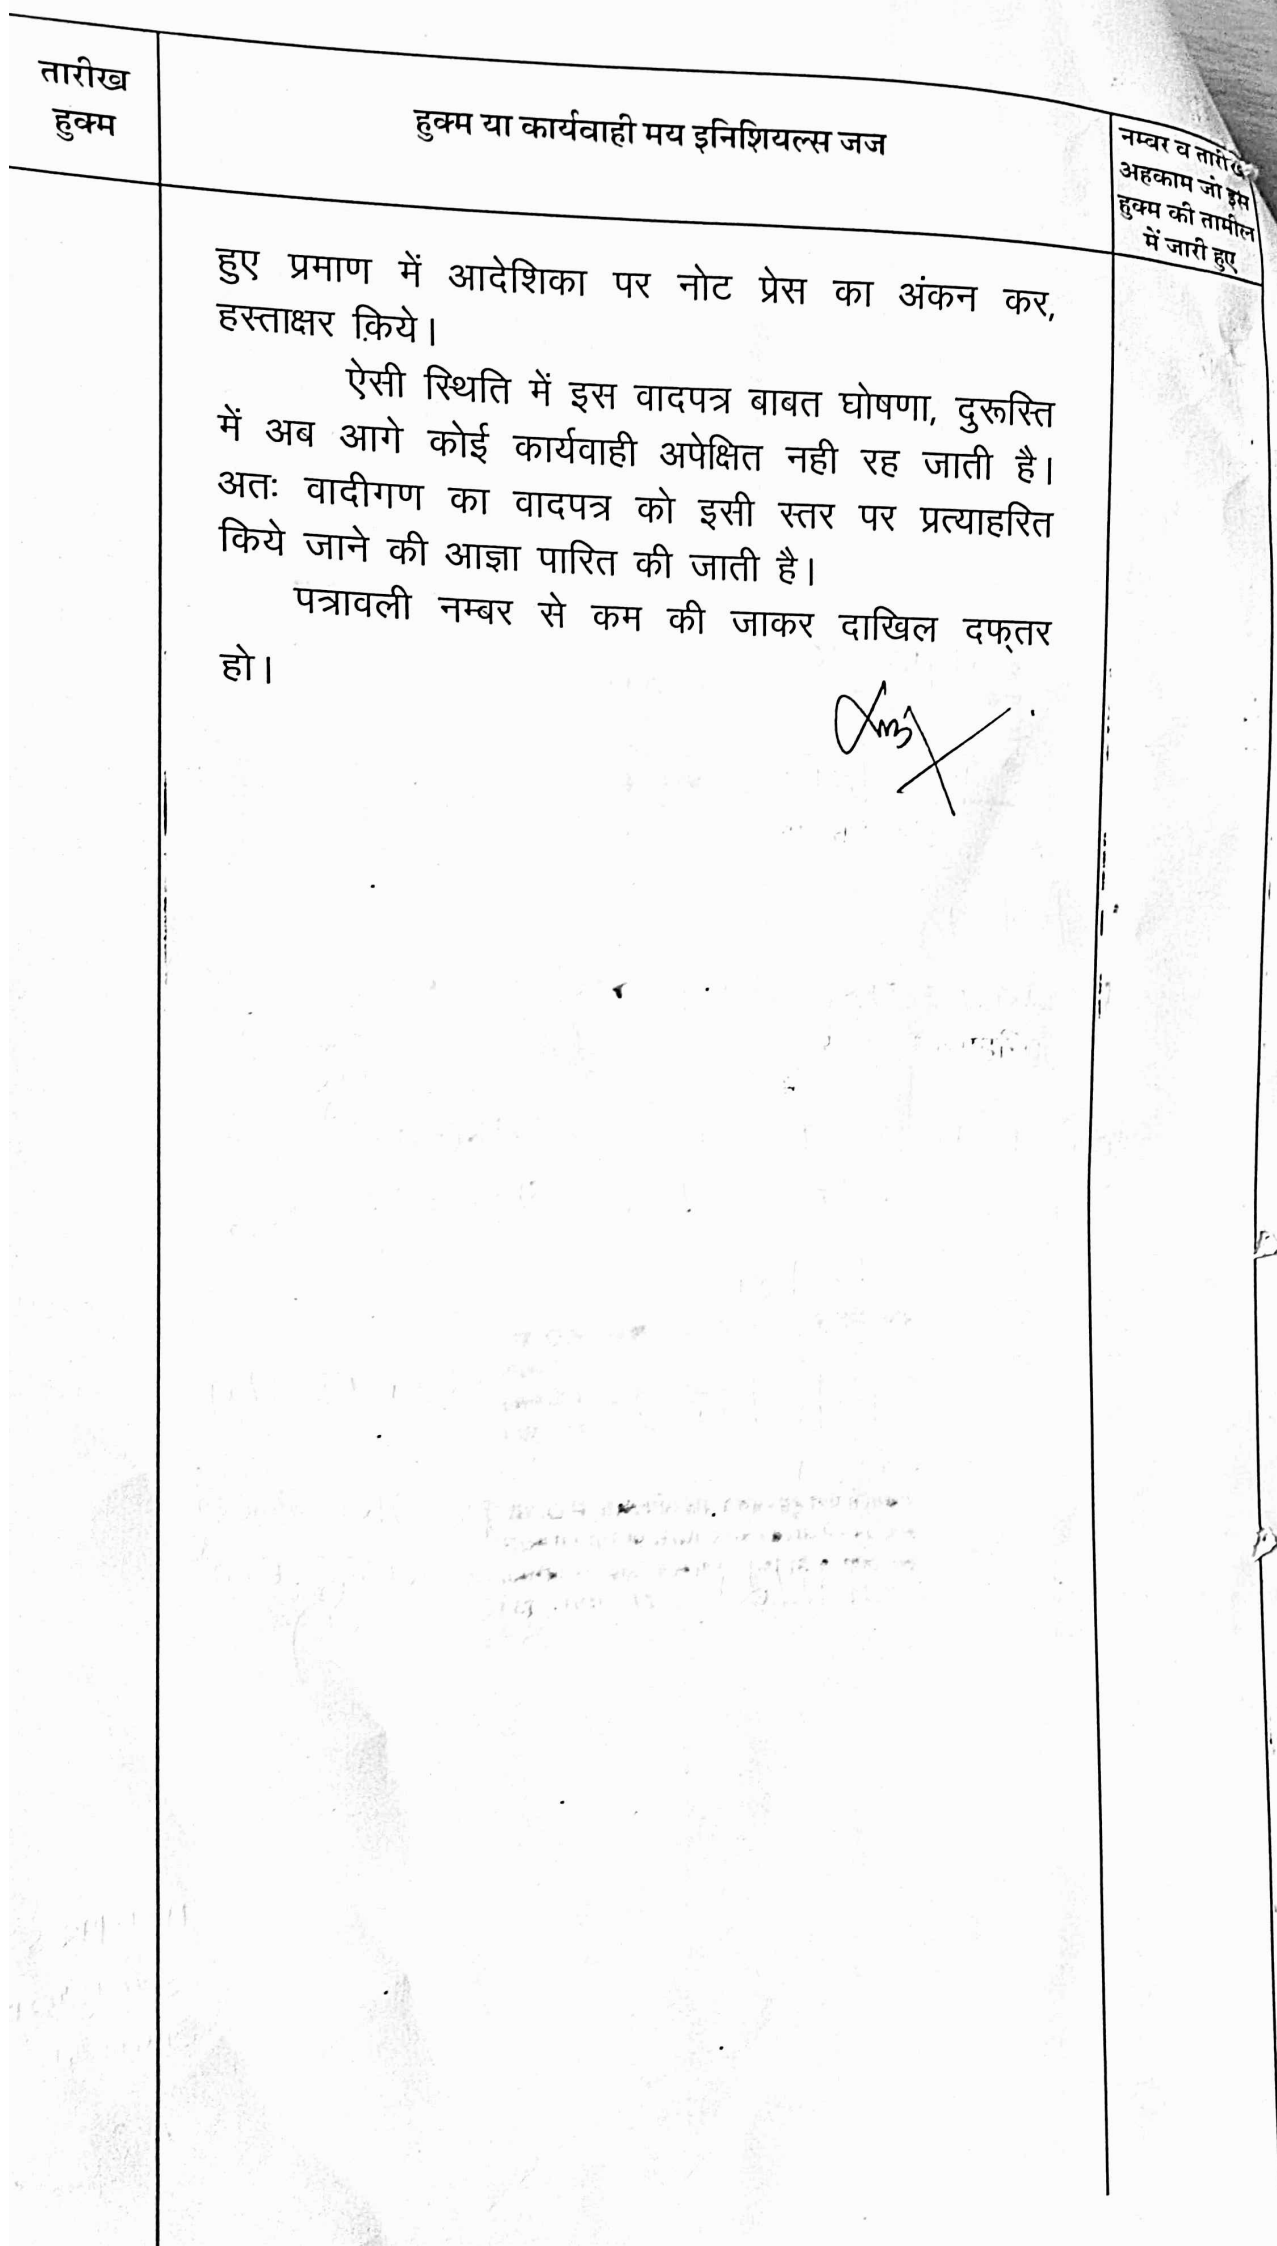 तारीख
हुक्म
हुक्म या कार्यवाही मय इनिशियल्स जज
नम्बर व तारीख
अहकाम जो इस
हुक्म की तामील
में जारी हुए
हुए प्रमाण में आदेशिका पर नोट प्रेस का अंकन कर,
हस्ताक्षर किये।
ऐसी स्थिति में इस वादपत्र बाबत घोषणा, दुरूस्ति
में अब आगे कोई कार्यवाही अपेक्षित नही रह जाती है।
अतः वादीगण का वादपत्र को इसी स्तर पर प्रत्याहरित
किये जाने की आज्ञा पारित की जाती है।
पत्रावली नम्बर से कम की जाकर दाखिल दफ्तर
हो।